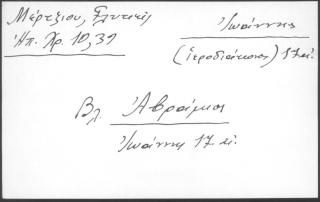 Μέρτζιου, Ἐλυτικὴ
Ἠπ. Χρ. 10, 39
Ἰωάννης
(ἱεροδιάκονος) 17 αἰ.
Βλ. Ἀβράμιος
Ἰωάννης 17. αἰ.